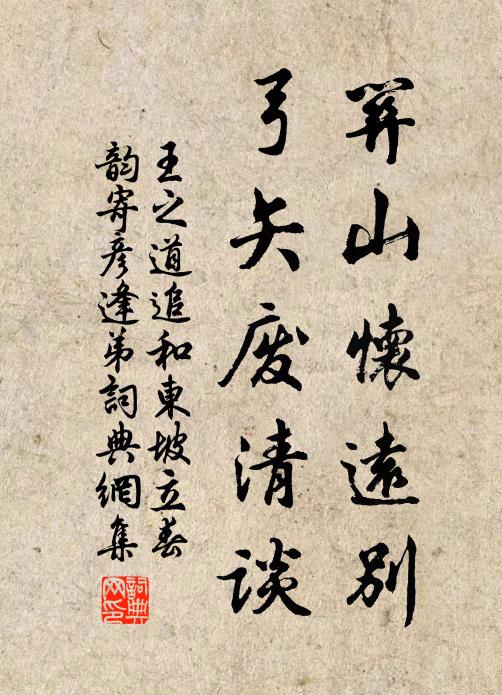 關山懷遠別
弓矢廢清談
王之道追和東坡立春
韵寄彥逢弟詞典網集
詞典網印